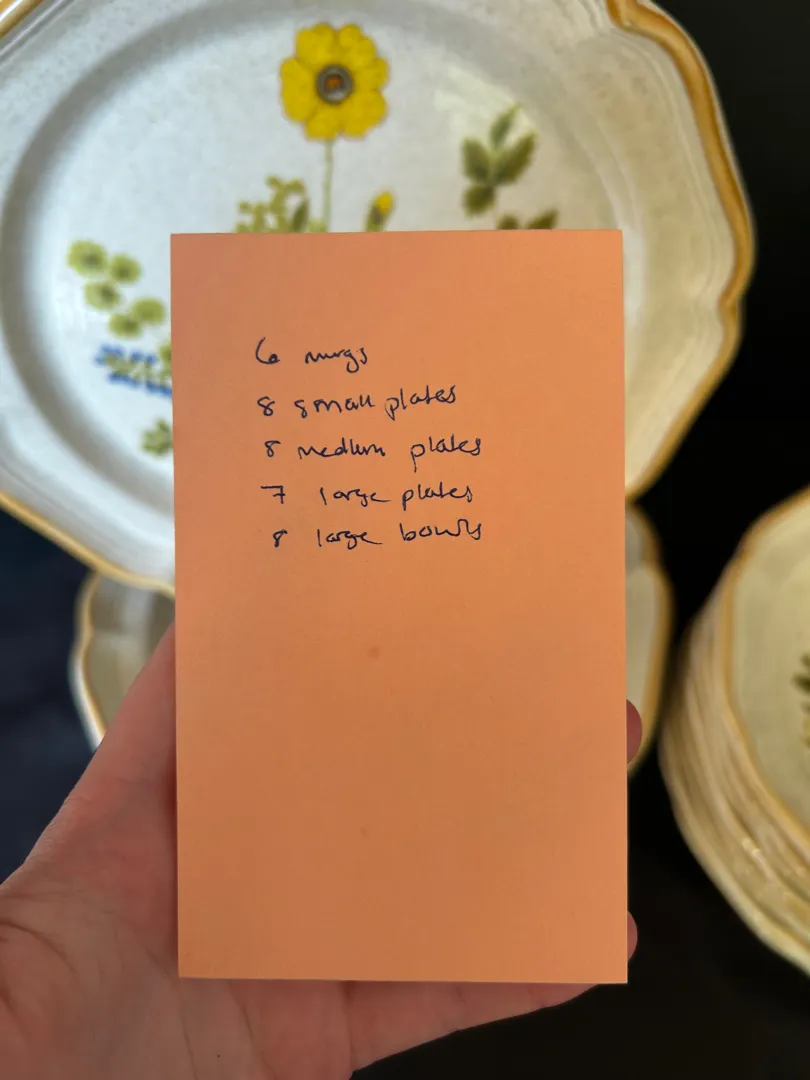 6 mugs
8 small plates
8 medium plates
7 large plates
8 large bowls